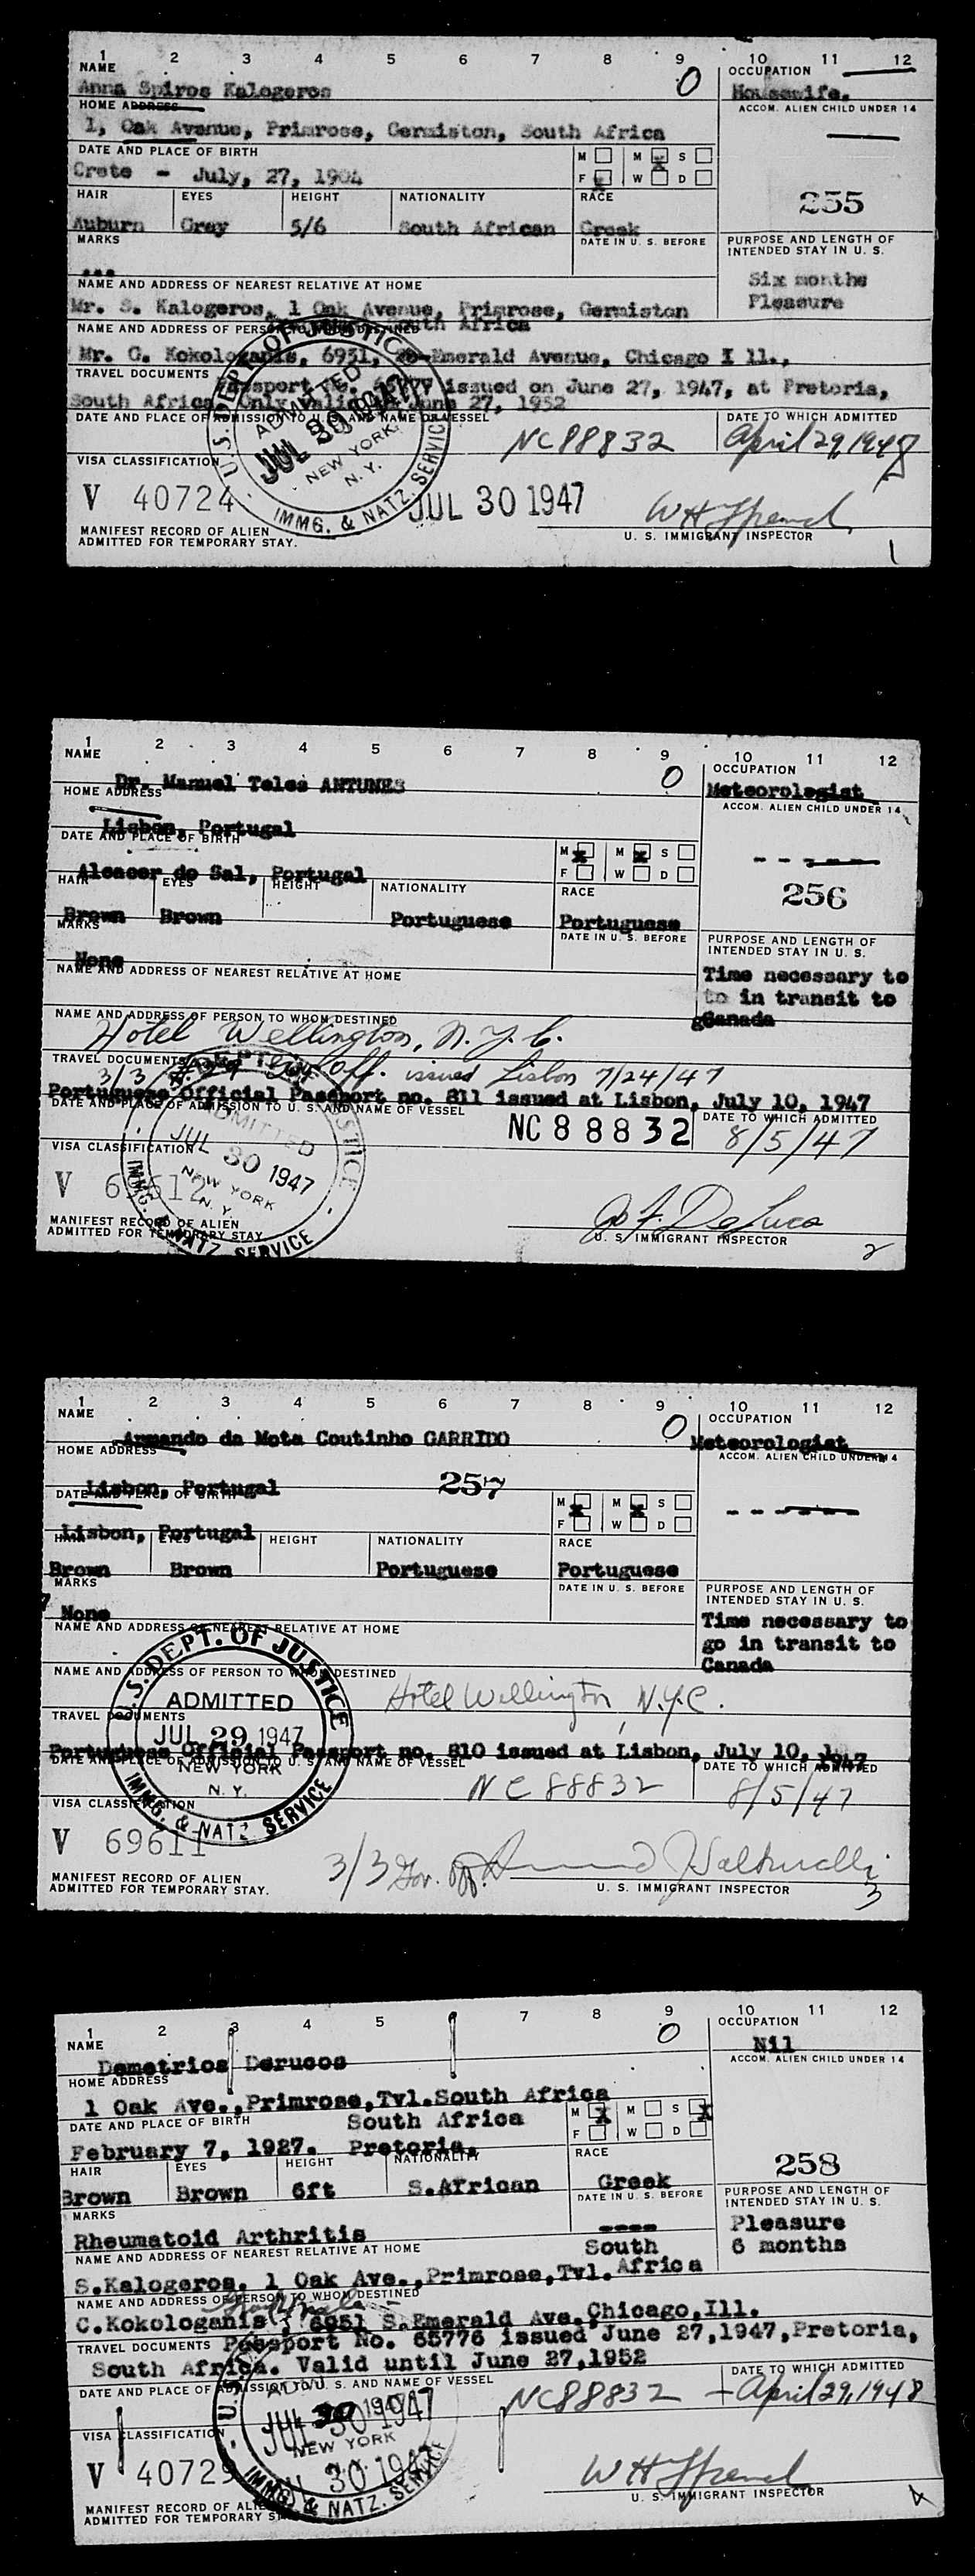 1 2 3 4 5 6 7 8 9 10 11 12
NAME OCCUPATION
Anna Spiros Kalogeros 0 Housewife.
HOME ADDRESS ACCOM. ALIEN CHILD UNDER 14
1, Oak Avenue, Primrose, Germiston, South Africa
DATE AND PLACE OF BIRTH M M S
Crete - July, 27, 1904 F W D
HAIR EYES HEIGHT NATIONALITY RACE 255
Auburn Gray 5/6 South African Greek
MARKS DATE IN U. S. BEFORE PURPOSE AND LENGTH OF
INTENDED STAY IN U. S.
Six months
NAME AND ADDRESS OF NEAREST RELATIVE AT HOME Pleasure
Mr. S. Kalogeros, 1 Oak Avenue, Primrose, Germiston
South Africa
NAME AND ADDRESS OF PERSON TO WHOM DESTINED
Mr. C. Kokologanis, 6951, Emerald Avenue, Chicago I ll.,
TRAVEL DOCUMENTS
Passport issued on June 27, 1947, at Pretoria,
South Africa Only June 27, 1952
DATE AND PLACE OF ADMISSION TO U. S. AND NAME OF VESSEL DATE TO WHICH ADMITTED
NC88832 April 29, 1948
U.S. DEPT. OF JUSTICE
ADMITTED
JUL 30 1947
NEW YORK,
N. Y.
IMMG. & NATZ. SERVICE
VISA CLASSIFICATION
V 40724 JUL 30 1947
MANIFEST RECORD OF ALIEN
ADMITTED FOR TEMPORARY STAY. U. S. IMMIGRANT INSPECTOR
1
1 2 3 4 5 6 7 8 9 10 11 12
NAME OCCUPATION
Dr. Manuel Teles ANTUNES 0 Meteorologist
HOME ADDRESS ACCOM. ALIEN CHILD UNDER 14
Lisbon, Portugal
DATE AND PLACE OF BIRTH M M S
Alcacer do Sal, Portugal F W D
HAIR EYES HEIGHT NATIONALITY RACE 256
Brown Brown Portuguese Portuguese
MARKS DATE IN U. S. BEFORE PURPOSE AND LENGTH OF
None INTENDED STAY IN U. S.
NAME AND ADDRESS OF NEAREST RELATIVE AT HOME Time necessary to
to in transit to
Canada
NAME AND ADDRESS OF PERSON TO WHOM DESTINED
Hotel Wellington, N.Y.C.
TRAVEL DOCUMENTS
3/3 Off. issued Lisbon 7/24/47
Portuguese Official Passport no. 811 issued at Lisbon, July 10, 1947
DATE AND PLACE OF ADMISSION TO U. S. AND NAME OF VESSEL DATE TO WHICH ADMITTED
NC88832 8/5/47
ADMITTED
JUL 30 1947
NEW YORK
N. Y.
IMMG. & NATZ. SERVICE
VISA CLASSIFICATION
V 69612
MANIFEST RECORD OF ALIEN
ADMITTED FOR TEMPORARY STAY. U. S. IMMIGRANT INSPECTOR
2
1 2 3 4 5 6 7 8 9 10 11 12
NAME OCCUPATION
Armando da Mota Coutinho GARRIDO 0 Meteorologist
HOME ADDRESS ACCOM. ALIEN CHILD UNDER 14
Lisbon, Portugal 257
DATE AND PLACE OF BIRTH M M S
Lisbon, Portugal F W D
HAIR EYES HEIGHT NATIONALITY RACE
Brown Brown Portuguese Portuguese
MARKS DATE IN U. S. BEFORE PURPOSE AND LENGTH OF
None INTENDED STAY IN U. S.
NAME AND ADDRESS OF NEAREST RELATIVE AT HOME Time necessary to
go in transit to
Canada
NAME AND ADDRESS OF PERSON TO WHOM DESTINED
Hotel Wellington, N.Y.C.
TRAVEL DOCUMENTS
Portuguese Official Passport no. 810 issued at Lisbon, July 10, 1947
DATE AND PLACE OF ADMISSION TO U. S. AND NAME OF VESSEL DATE TO WHICH ADMITTED
NC88832 8/5/47
U.S. DEPT. OF JUSTICE
ADMITTED
JUL 29 1947
NEW YORK
N. Y.
IMMG. & NATZ SERVICE
VISA CLASSIFICATION
V 69611
3/3 Gov. Off.
MANIFEST RECORD OF ALIEN
ADMITTED FOR TEMPORARY STAY. U. S. IMMIGRANT INSPECTOR
3
1 2 3 4 5 7 8 9 10 11 12
NAME OCCUPATION
Demetrios Derucos 0 Nil
HOME ADDRESS ACCOM. ALIEN CHILD UNDER 14
1 Oak Ave.,Primrose,Tvl.South Africa
DATE AND PLACE OF BIRTH South Africa M M S
February 7, 1927. Pretoria, F W D
HAIR EYES HEIGHT NATIONALITY RACE 258
Brown Brown 6ft S.African Greek
MARKS DATE IN U. S. BEFORE PURPOSE AND LENGTH OF
INTENDED STAY IN U. S.
Rheumatoid Arthritis ---- Pleasure
NAME AND ADDRESS OF NEAREST RELATIVE AT HOME South 6 months
S.Kalogeros. 1 Oak Ave.,Primrose,Tvl. Africa
NAME AND ADDRESS OF PERSON TO WHOM DESTINED
C.Kokologanis, 6951 S.Emerald Ave.Chicago,Ill.
TRAVEL DOCUMENTS Passport No. 65776 issued June 27,1947,Pretoria,
South Africa. Valid until June 27,1952
DATE AND PLACE OF ADMISSION TO U. S. AND NAME OF VESSEL DATE TO WHICH ADMITTED
NC88832 April 29, 1948
JUL 30 1947
NEW YORK
30 1947
IMMG. & NATZ. SERVICE
VISA CLASSIFICATION
V 40729
MANIFEST RECORD OF ALIEN
ADMITTED FOR TEMPORARY STAY U. S. IMMIGRANT INSPECTOR
4